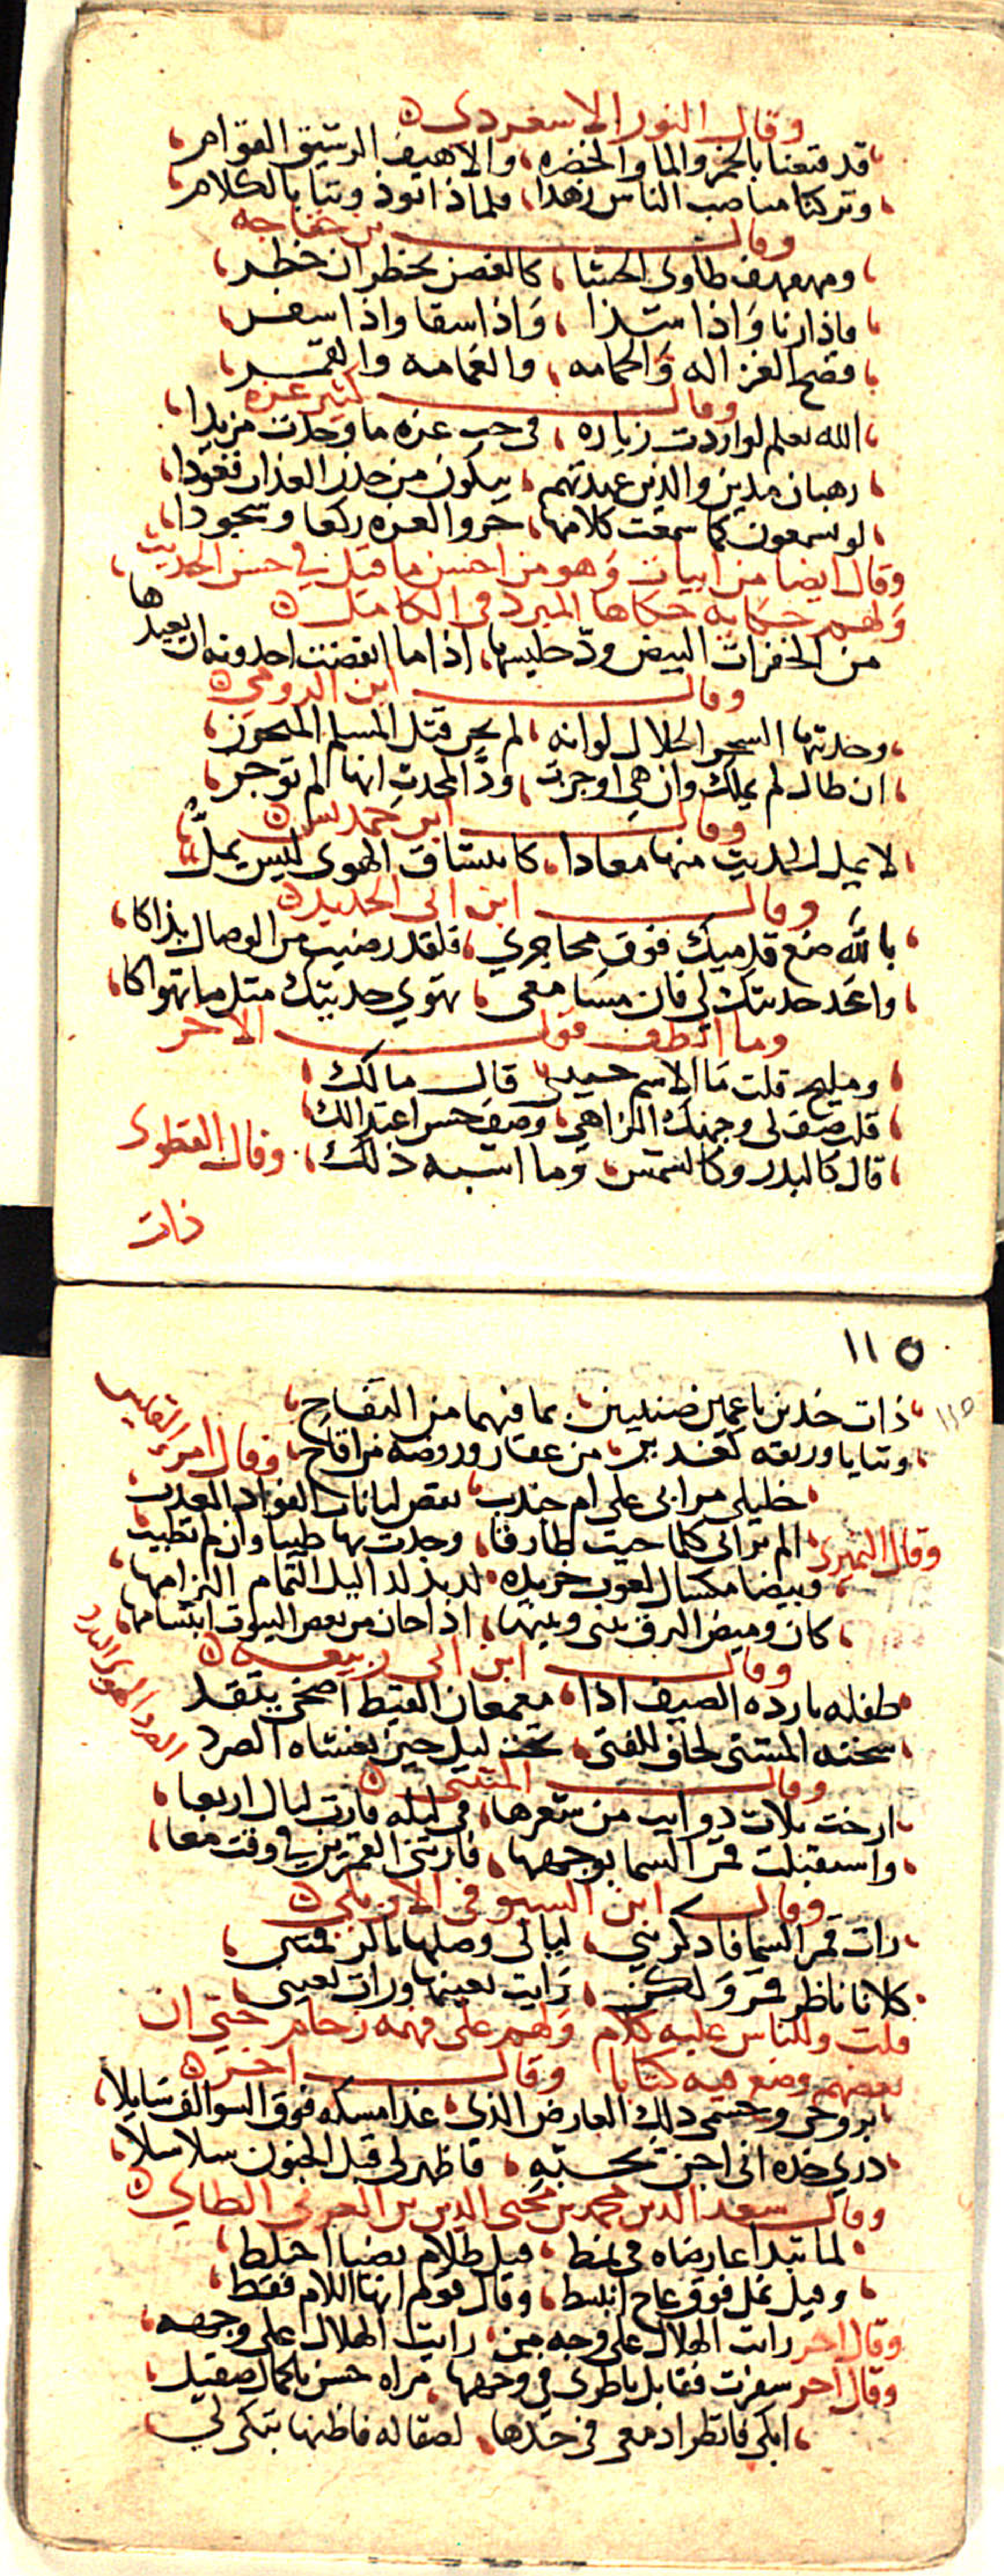 وقال النور الاسعردى
قد قنعنا بالخبز والما والخضره، والاهيف الرشيق القوام،
وتركنا مناصب الناس زهدا، فلماذا نوذونتا بالكلام
وقال بن خفاجه
ومهفهف طاوى الحشا، كالغصن يخطر ان خطر،
فاذا رنا واذا شدا، واذا سقا واذا سفر،
فضح الغزاله والحمامه، والغمامه والقمر،
وقال كثير عزه
الله يعلم لو اردت زياده، فى حب عزه ما وجدت مزيدا،
رهبان مدين والذين عهدتهم، يبكون من حذر العذاب قعودا،
لو يسمعون كما سمعت كلامها، خروا لعزه ركعا وسجودا،
وقال ايضا من ابيات وهو من احسن ما قيل في حسن الحديث،
ولهم حكاية حكاها المبرد فى الكامل
من الخفرات البيض ود جليسها، اذا ما انقضت احدوثه ان يعيدها
وقال ابن الرومي
وحديثها السحر الحلال لو انه، لم يجن قتل المسلم المتحرز،
ان طال لم يملك وان هى اوجزت، ود المحدث انها لم توجز،
وقال ابن حمديس
لا يمل الحديث منها معادا، كانتشاق الهوى ليس يمل
وقال ابن ابى الحديد
بالله ضع قدميك فوق محاجري، فلقد رضيت من الوصال بذاكا،
واعد حديثك لى فان مسامعى، تهوي حديثك مثل ما تهواكا،
وما الطف قول الاخر
ومليح قلت ما الاسم حبيبى قال مالك
قلت صف لى وجهك الزاهى، وصف حسن اعتدالك
قال كالبدر وكالشمس، وما اشبه ذلك، وقال القطوى
ذات
١١٥
ذات خدين ناعمين ضنينين، بما فيهما من التفاح،
وثنايا وريقه كغدير، من عقار وروضه من اقاح، وقال امرء القيس
خليلى مرا بى على ام جندب، نقض لبانات الفواد المعذب
الم ترانى كلما جيت طارقا، وجدت بها طيبا وان لم تطيب
وقال النميرى وبيضا مكسال لعوب خريده، لذيذ لدى اليل التمام التزامها،
كان وميض البرق بينى وبينها، اذا حان من بعض البيوت ابتسامها،
وقال ابن ابى ربيعه
طفله بارده الصيف اذا، معمعان القيظ اضحى يتقد
سخنه المشتى لحاف للفتى، تحت ليل حين يغشاه الصرد
الصرد البرد
وقال المتنبى
ارخت ثلاث دوايب من شعرها، فى ليله فارت ليالى اربعا،
واستقبلت قمر السما بوجهها، فارتنى القمرين في وقت معا،
وقال ابن المستوفى الاربلي
رات قمر السما فاذكرتنى، ليالى وصلها بالرقمتين،
كلانا ناظر قمرا ولكن، رايت بعينها ورات بعينى،
قلت وللناس عليه كلام ولهم على فهمه زحام حتى ان
بعضهم وضع فيه كتابا وقال اخر
بروحى وجسمى ذلك العارض الذى، غدا مسكه فوق السوالف سايلا،
درى خده انى اجن بحبه، فاظهر لى قبل الجنون سلاسلا،
وقال سعد الدين محمد بن محيى الدين بن العربى الطاي
لما تبدا عارضاه فى نمط، قيل ظلام بضيا اختلط
وقيل نمل فوق عاج انبسط، وقال قوم انها اللام فقط
وقال اخر رايت الهلال على وجه من، رايت الهلال على وجهه،
وقال اخر سفرت فقابل ناظرى فى وجهها، مراه حسن بالجمال صقيل،
ابكى فانظر ادمعى فى خدها، لصقاله فاظنها تبكى لي